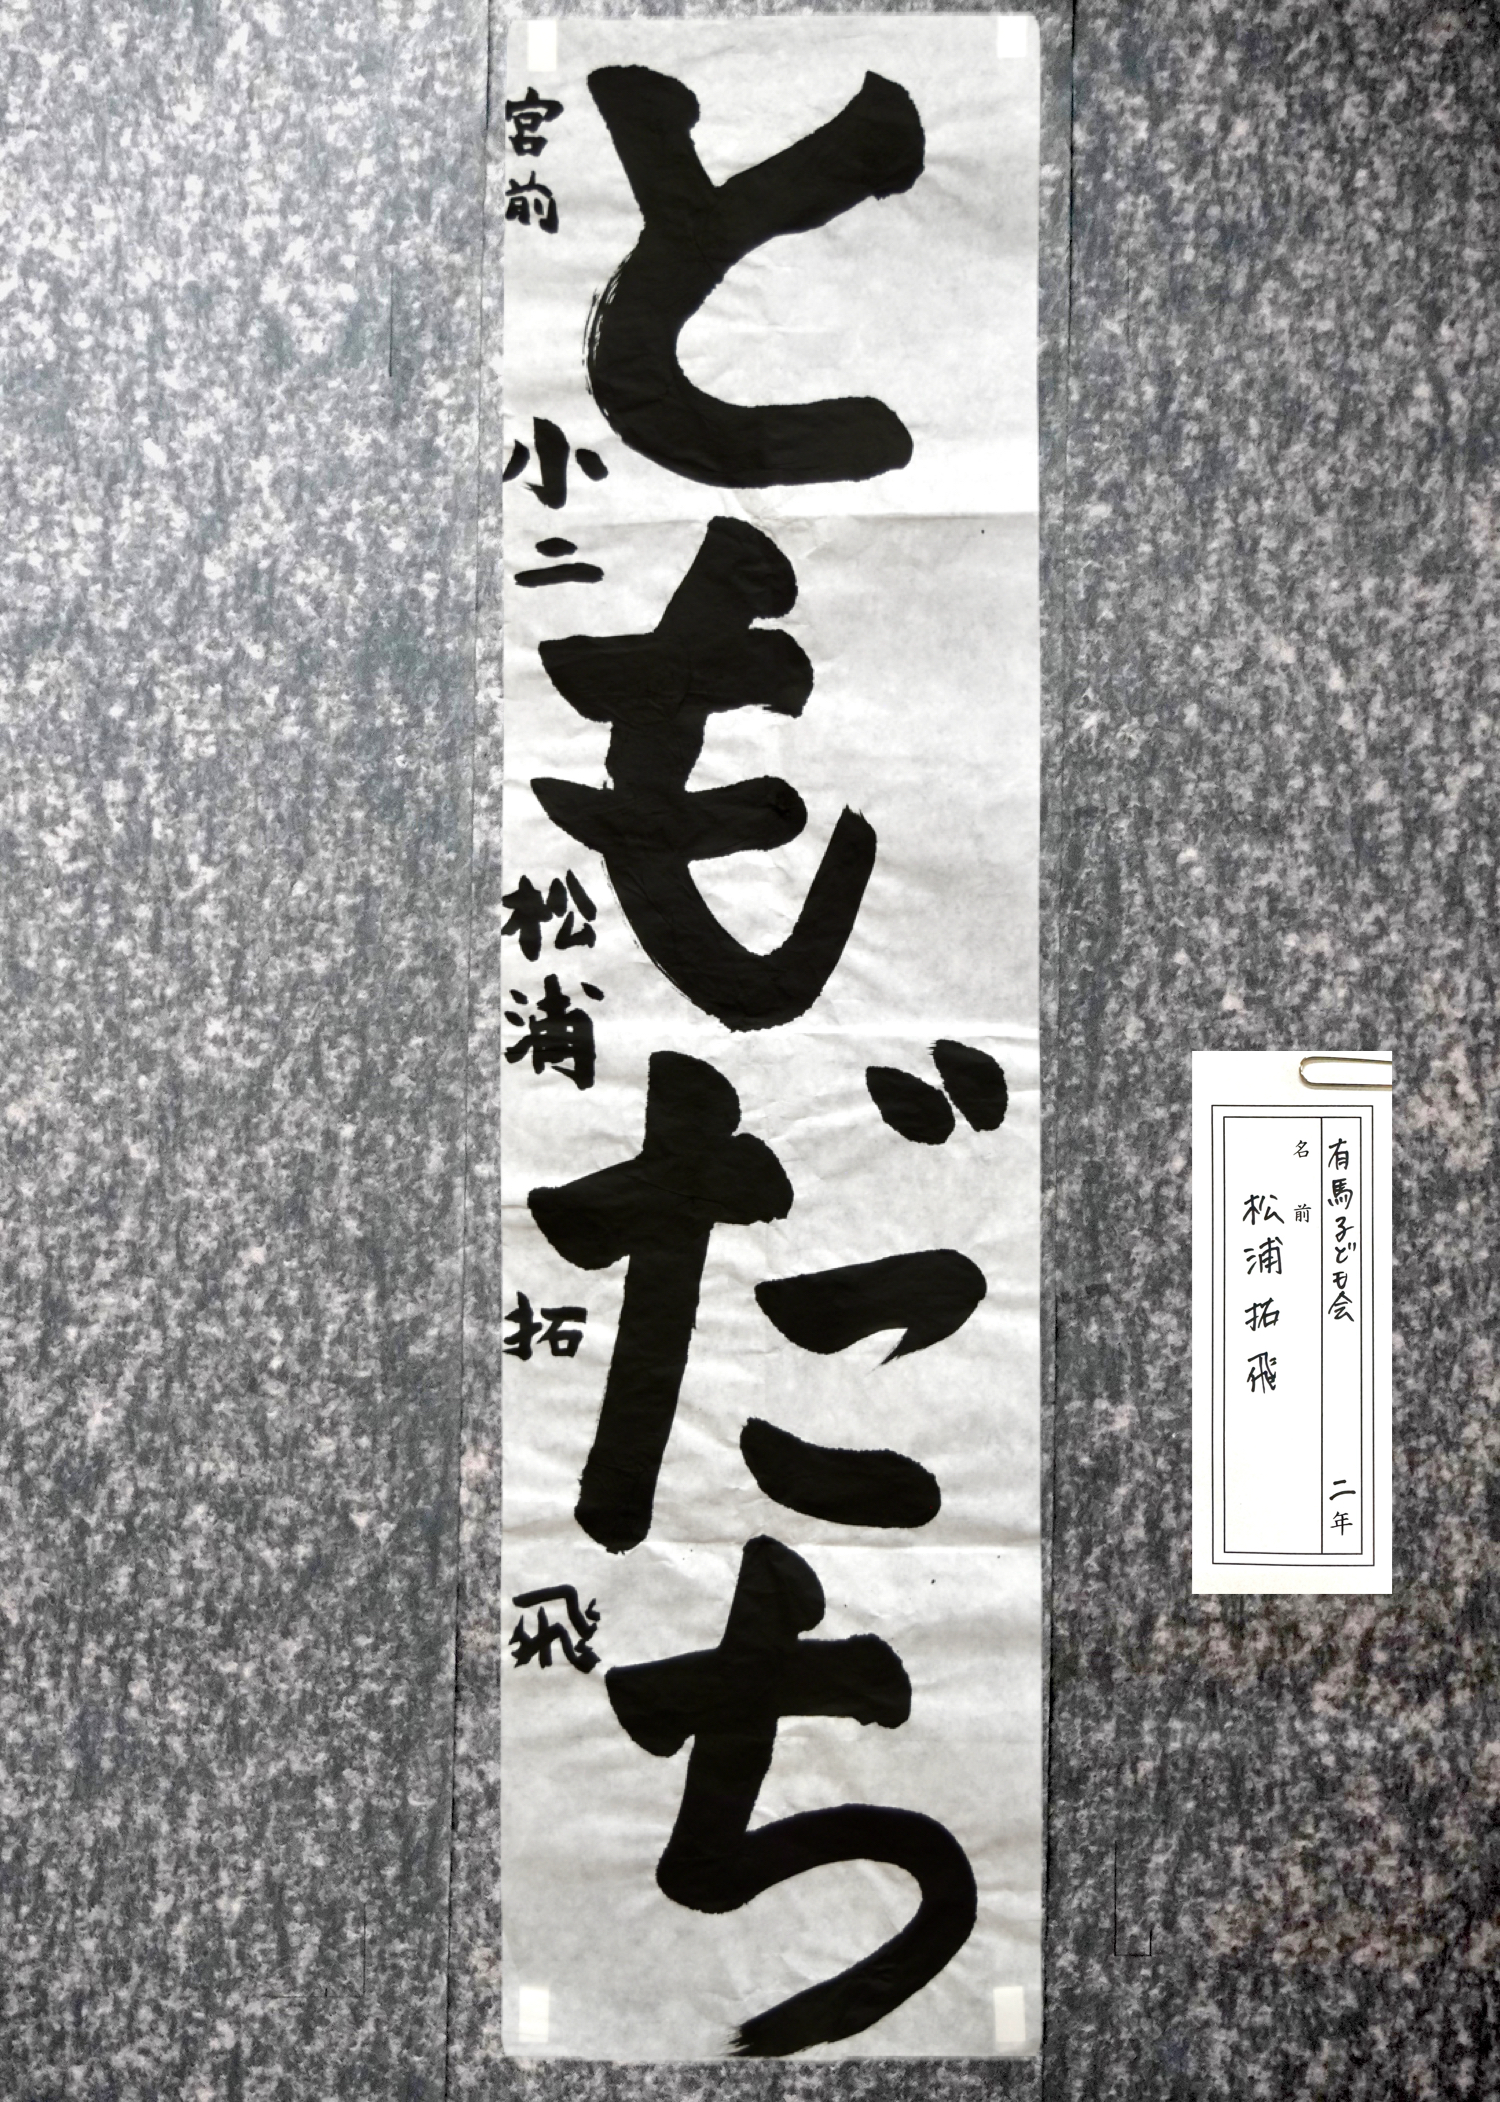 ともだち
宮前 小二 松浦 拓 飛
有馬子ども会 二年
名前
松浦 拓飛